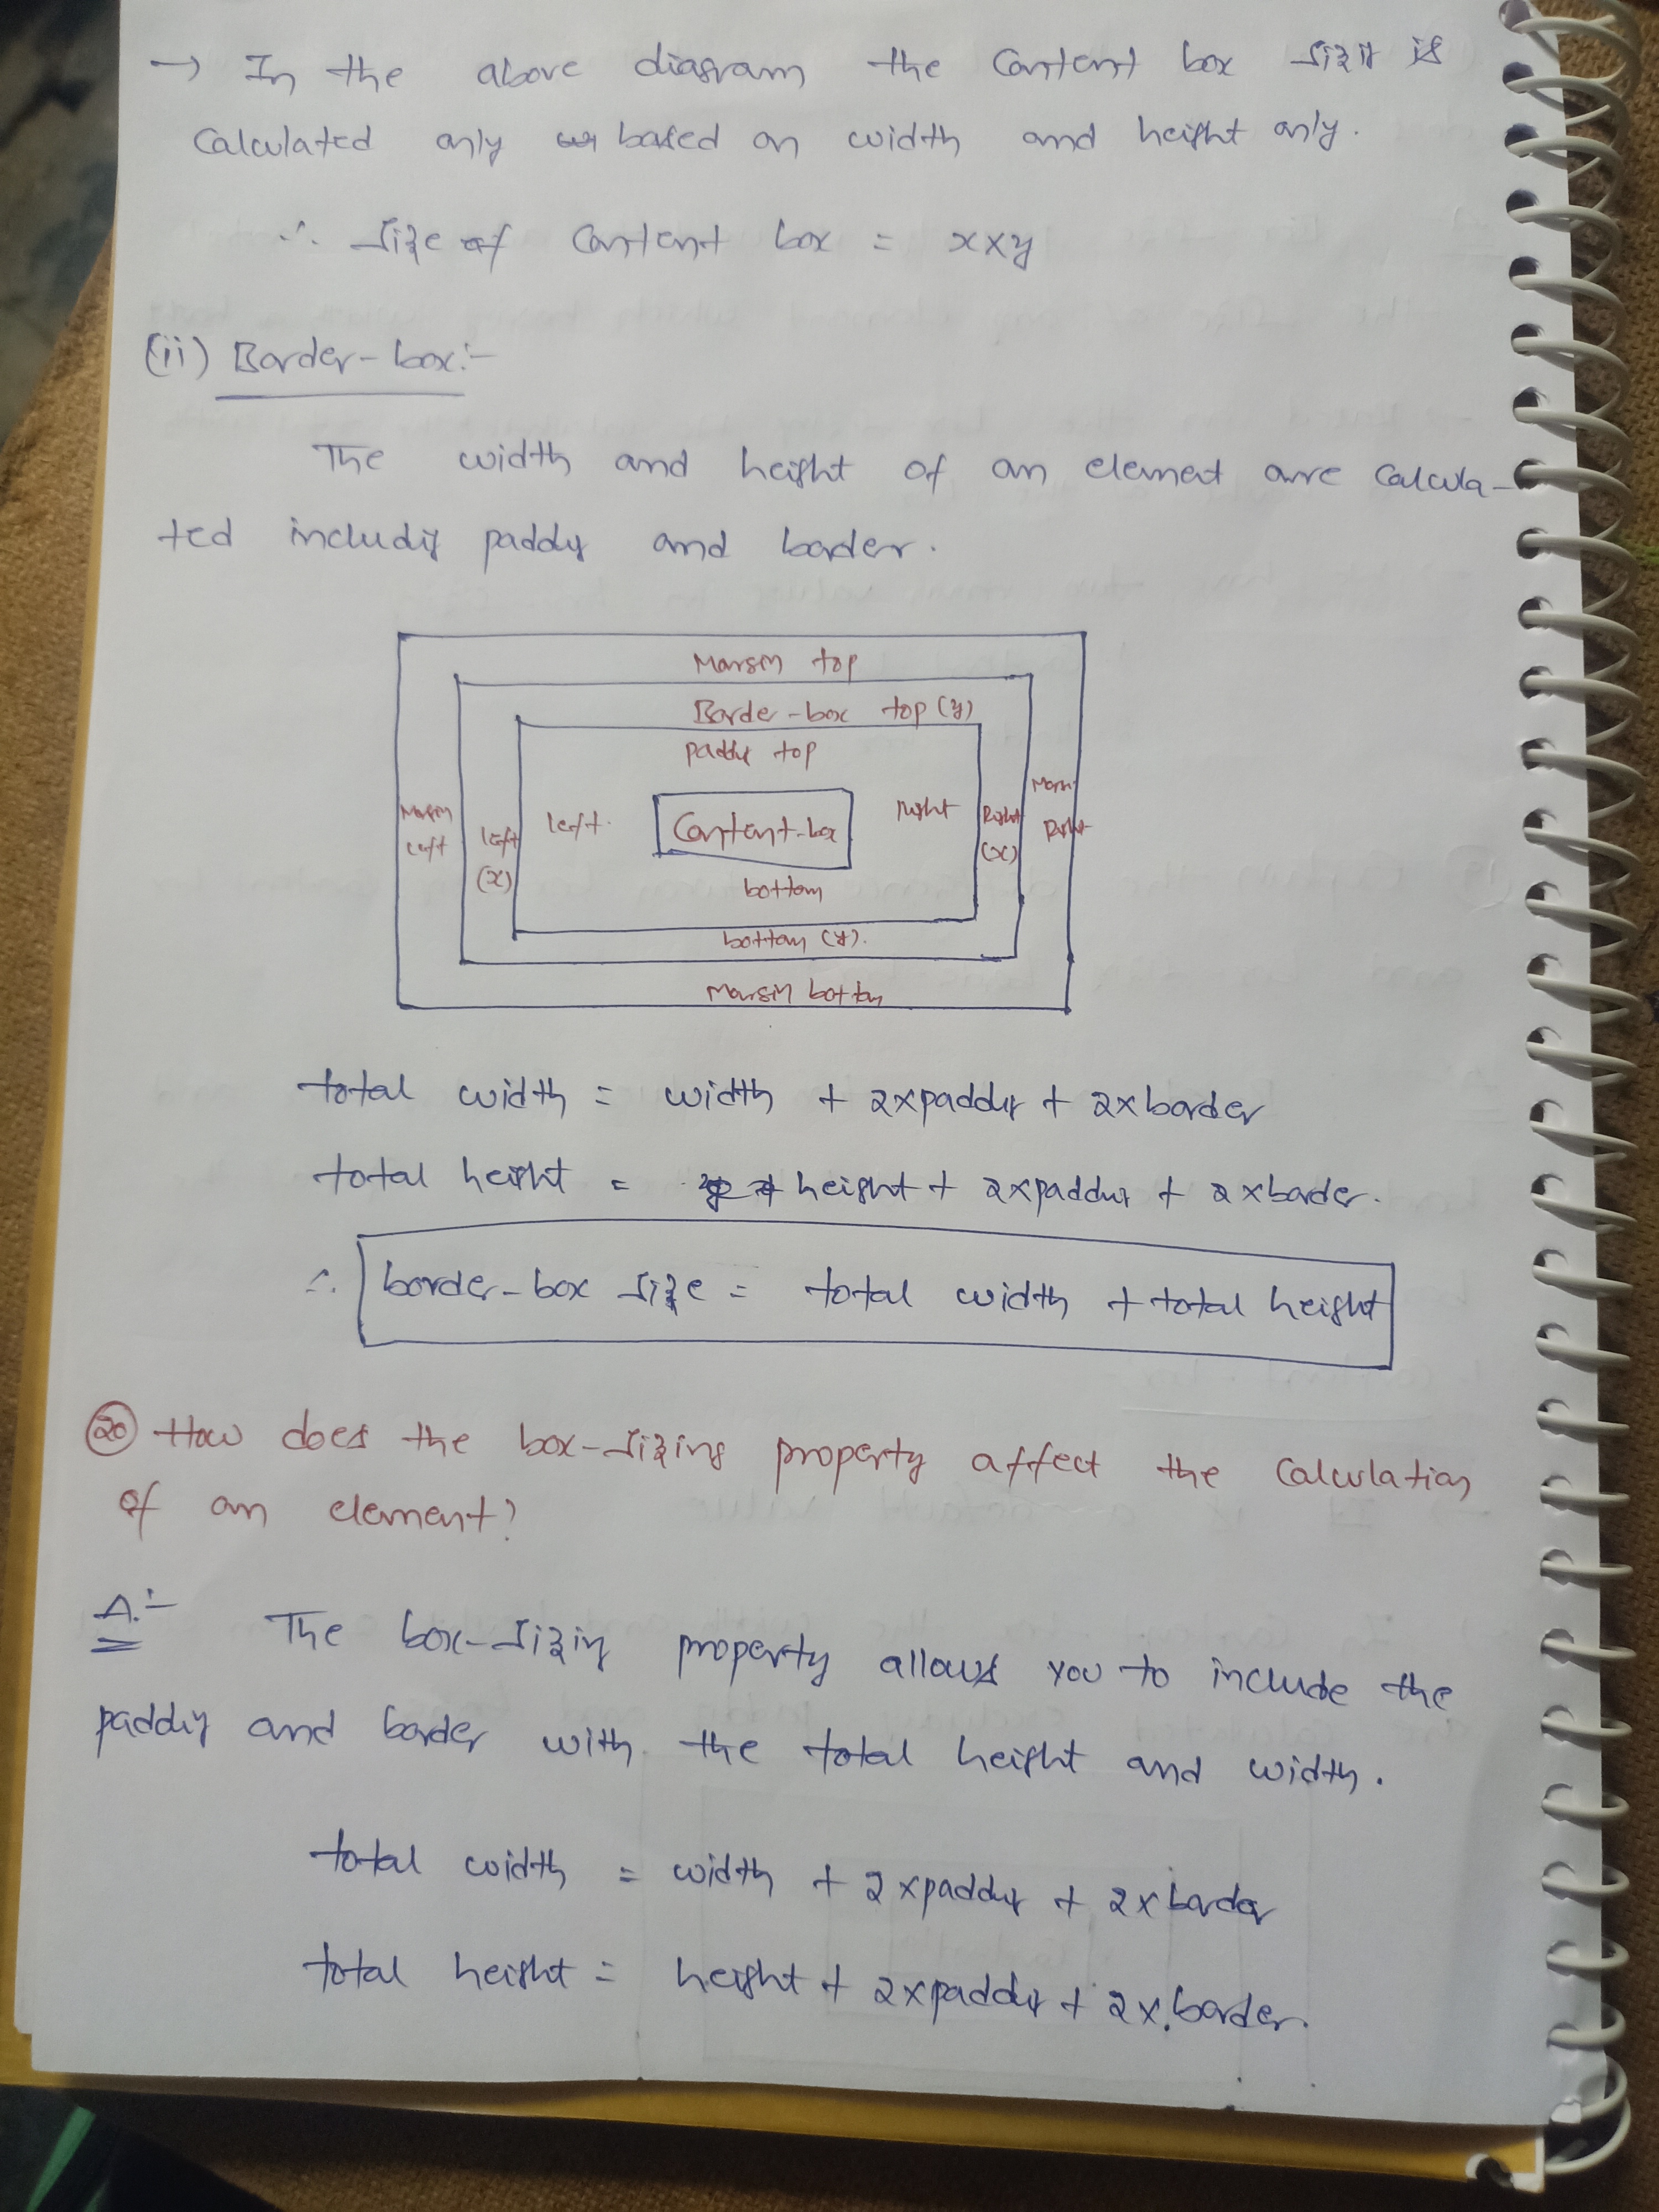 → In the above diagram the Content box size is
Calculated only based on width and height only.
∴ Size of Content box = x×y
(ii) Border-box:-
The width and height of an element are Calcula-
ted including padding and border.
Margin top
Border-box top (y)
padding top
Margin left
left (x)
left
Content-box
right
Right (x)
Right
bottom
bottom (y).
Margin bottom
total width = width + 2×padding + 2×border
total height = height + 2×padding + 2×border.
∴ border-box size = total width + total height
20 How does the box-sizing property affect the Calculation
of an element?
A:- The box-sizing property allows you to include the
padding and border with the total height and width.
total width = width + 2×padding + 2×border
total height = height + 2×padding + 2×border.